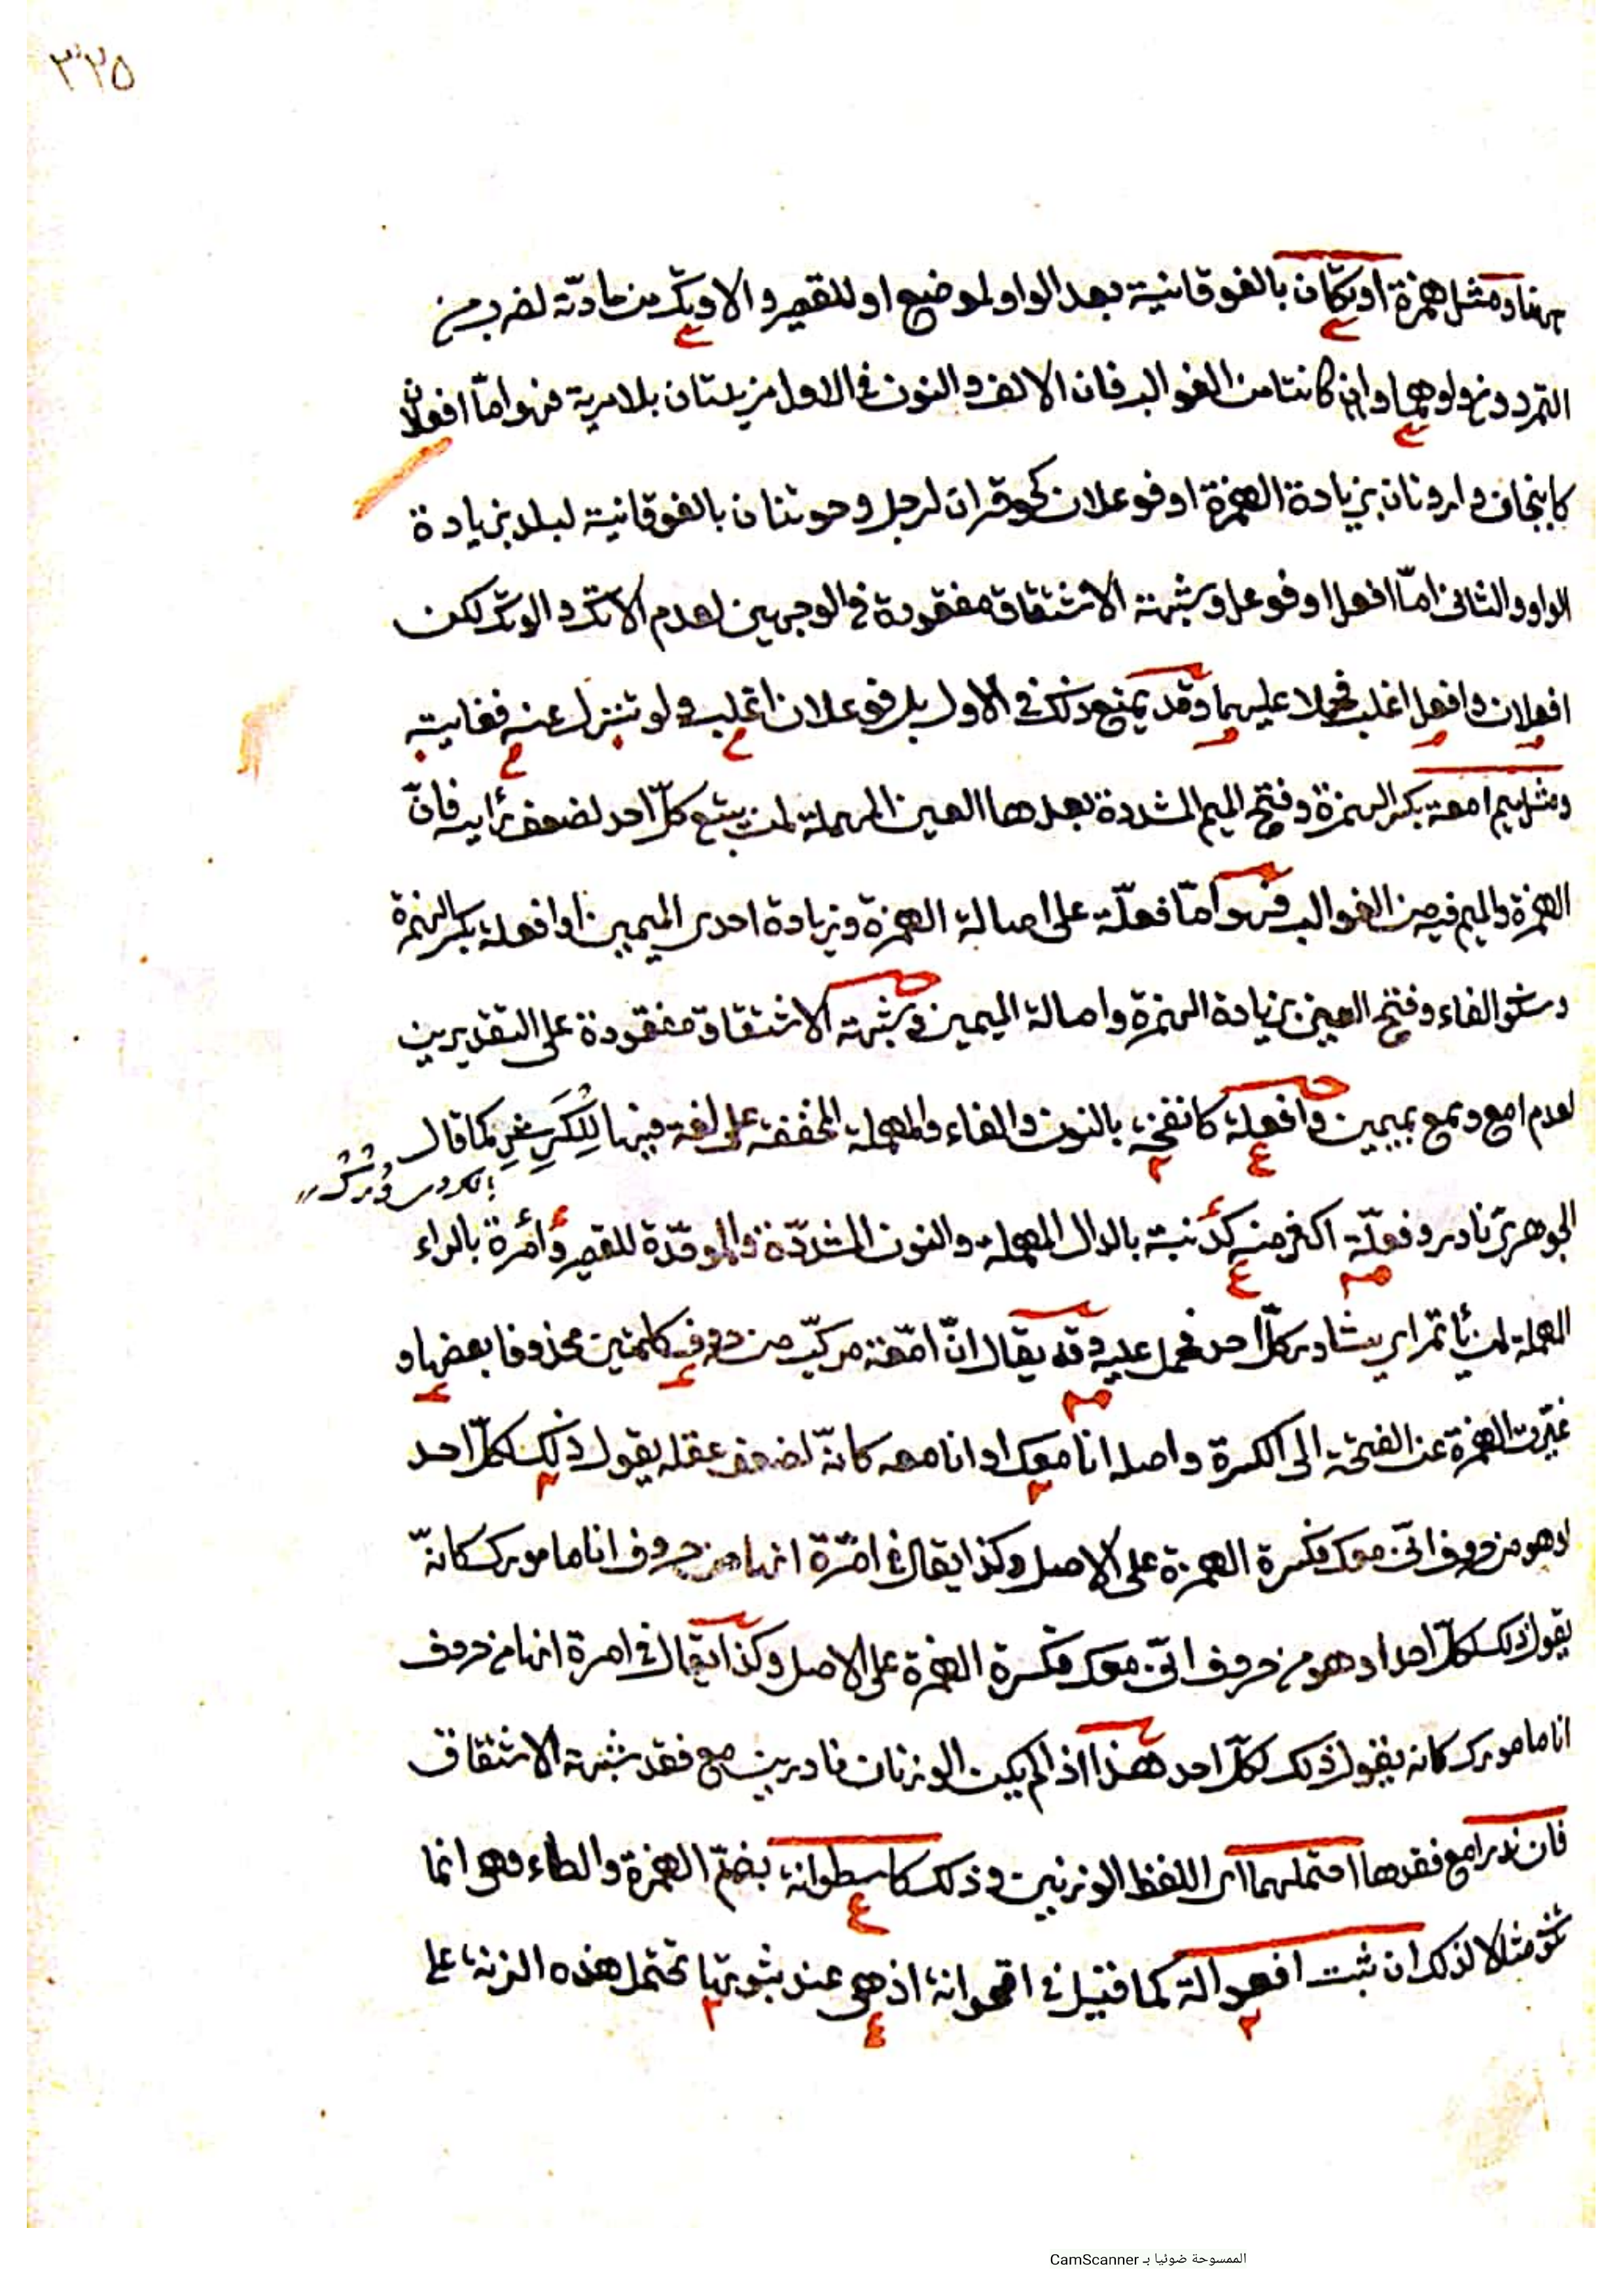 ٣٢٥
هنا ومثل همزة اوتكان بالفوقانية بعد الواو لموضع او للقصير والاوتكى من مادته لضرب من
التمر دون واوهما وان كانتا من الغوالب فان الالف والنون فى الاول مزيدتان بلا مرية فهو اما افعلان
كانبجان وارونان بزيادة الهمزة او فوعلان كحوقران لرجل وحوتنان بالفوقانية لبلد بزيادة
الواو والثانى اما افعل او فوعل وشبهة الاشتقاق مفقودة فى الوجهين لعدم الاتك والوتك لكن
افعلان وافعل اغلب فحملا عليهما وقد يمنع ذلك فى الاول بل فوعلان اغلب ولو تنزل عنه فغايته
ومثل ميم امعة بكسر الهمزة وفتح الميم المشددة بعدها العين المهملة لمن يتبع كل احد لضعف رأيه فان
الهمزة والميم فيه من الغوالب فهو اما فعلة على اصالة الهمزة وزيادة احدى الميمين او افعلة بكسر الهمزة
وسكون الفاء وفتح العين بزيادة الهمزة واصالة الميمين وشبهة الاشتقاق مفقودة على التقديرين
لعدم امع ومع بميمين وافعلة كانفحة بالنون والفاء والمهملة المخففة على لغة فيها للكرش كما قال
الجوهرى نادر وفعلة اكثر منه كدنبة بالدال المهملة والنون المشددة والموحدة للقصير وأمرة بالراء
المهملة لمن يأتمر اى يشاور كل احد فحمل عليه وقد يقال ان امعة مركب من حروف كلمتين محذوفا بعضها و
غيرت الهمزة عن الفتحة الى الكسرة واصله انا معك او انا معه كانه لضعف عقله يقول ذلك لكل احد
او هو من حروف انى معك فكسرة الهمزة على الاصل وكذا يقال فى امرة انها من حروف انا مامورك كانه
يقول ذلك لكل احد او هو من حروف انى معك فكسرة الهمزة على الاصل وكذا يقال فى امرة انها من حروف
انا مامورك كانه يقول ذلك لكل احد هذا اذا لم يكن الوزنان نادرين مع فقد شبهة الاشتقاق
فان ندرا مع فقدها احتملهما اى اللفظ الوزنين وذلك كاسطوانة بضم الهمزة والطاء وهو انما
تكون مثالا لذلك ان ثبت افعوالة كما قيل فى اقحوانة اذ هى عند ثبوتها تحتمل هذه الزنة على
الممسوحة ضوئيا بـ CamScanner